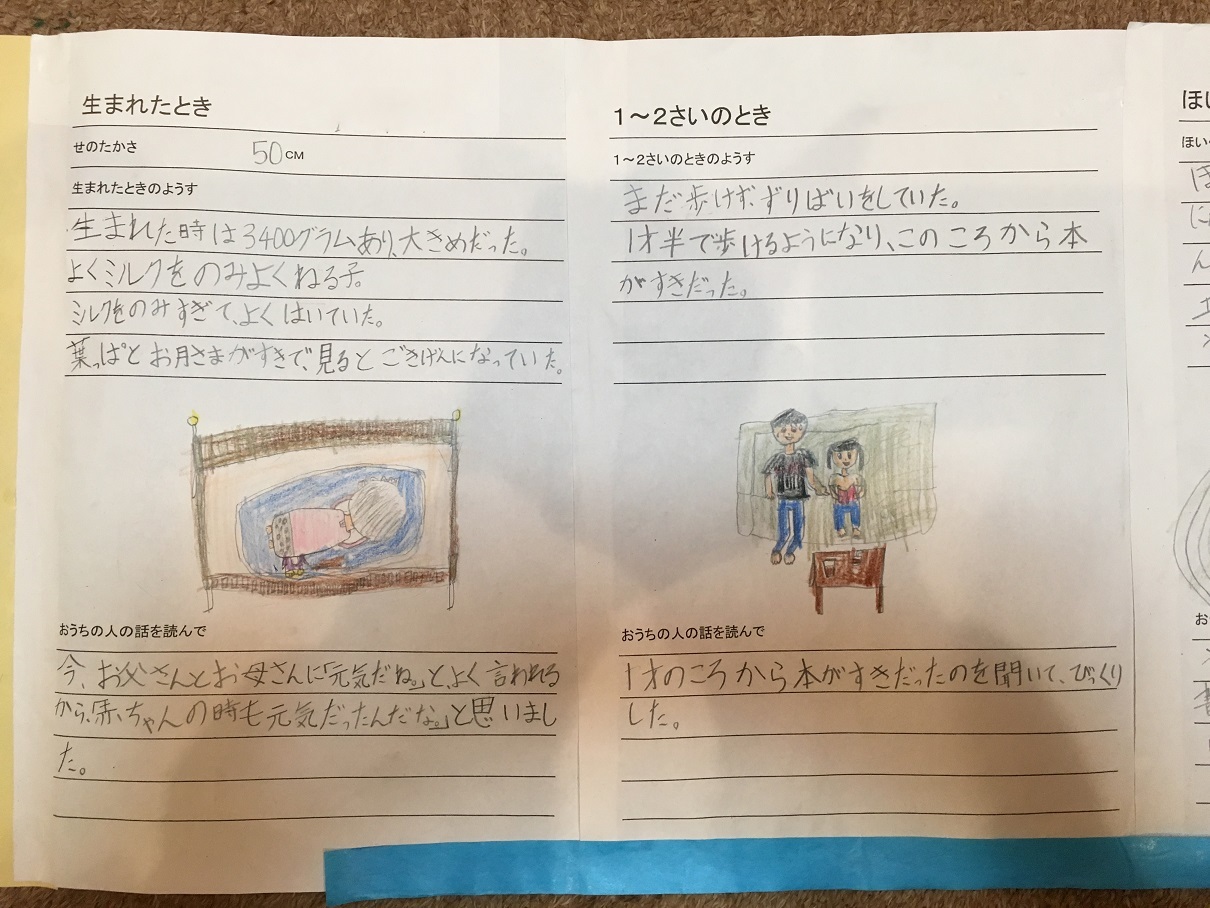 生まれたとき
せのたかさ 50CM
生まれたときのようす
生まれた時は3400グラムあり、大きめだった。
よくミルクをのみよくねる子。
ミルクをのみすぎて、よくはいていた。
葉っぱとお月さまがすきで、見るとごきげんになっていた。
おうちの人の話を読んで
今、お父さんとお母さんに「元気だね。」と、よく言われる
から、「赤ちゃんの時も元気だったんだな。」と思いまし
た。
1~2さいのとき
1~2さいのときのようす
まだ歩けず、ずりばいをしていた。
1才半で歩けるようになり、このころから本
がすきだった。
おうちの人の話を読んで
1才のころから本がすきだったのを聞いて、びっくり
した。
ほい
ほい
お